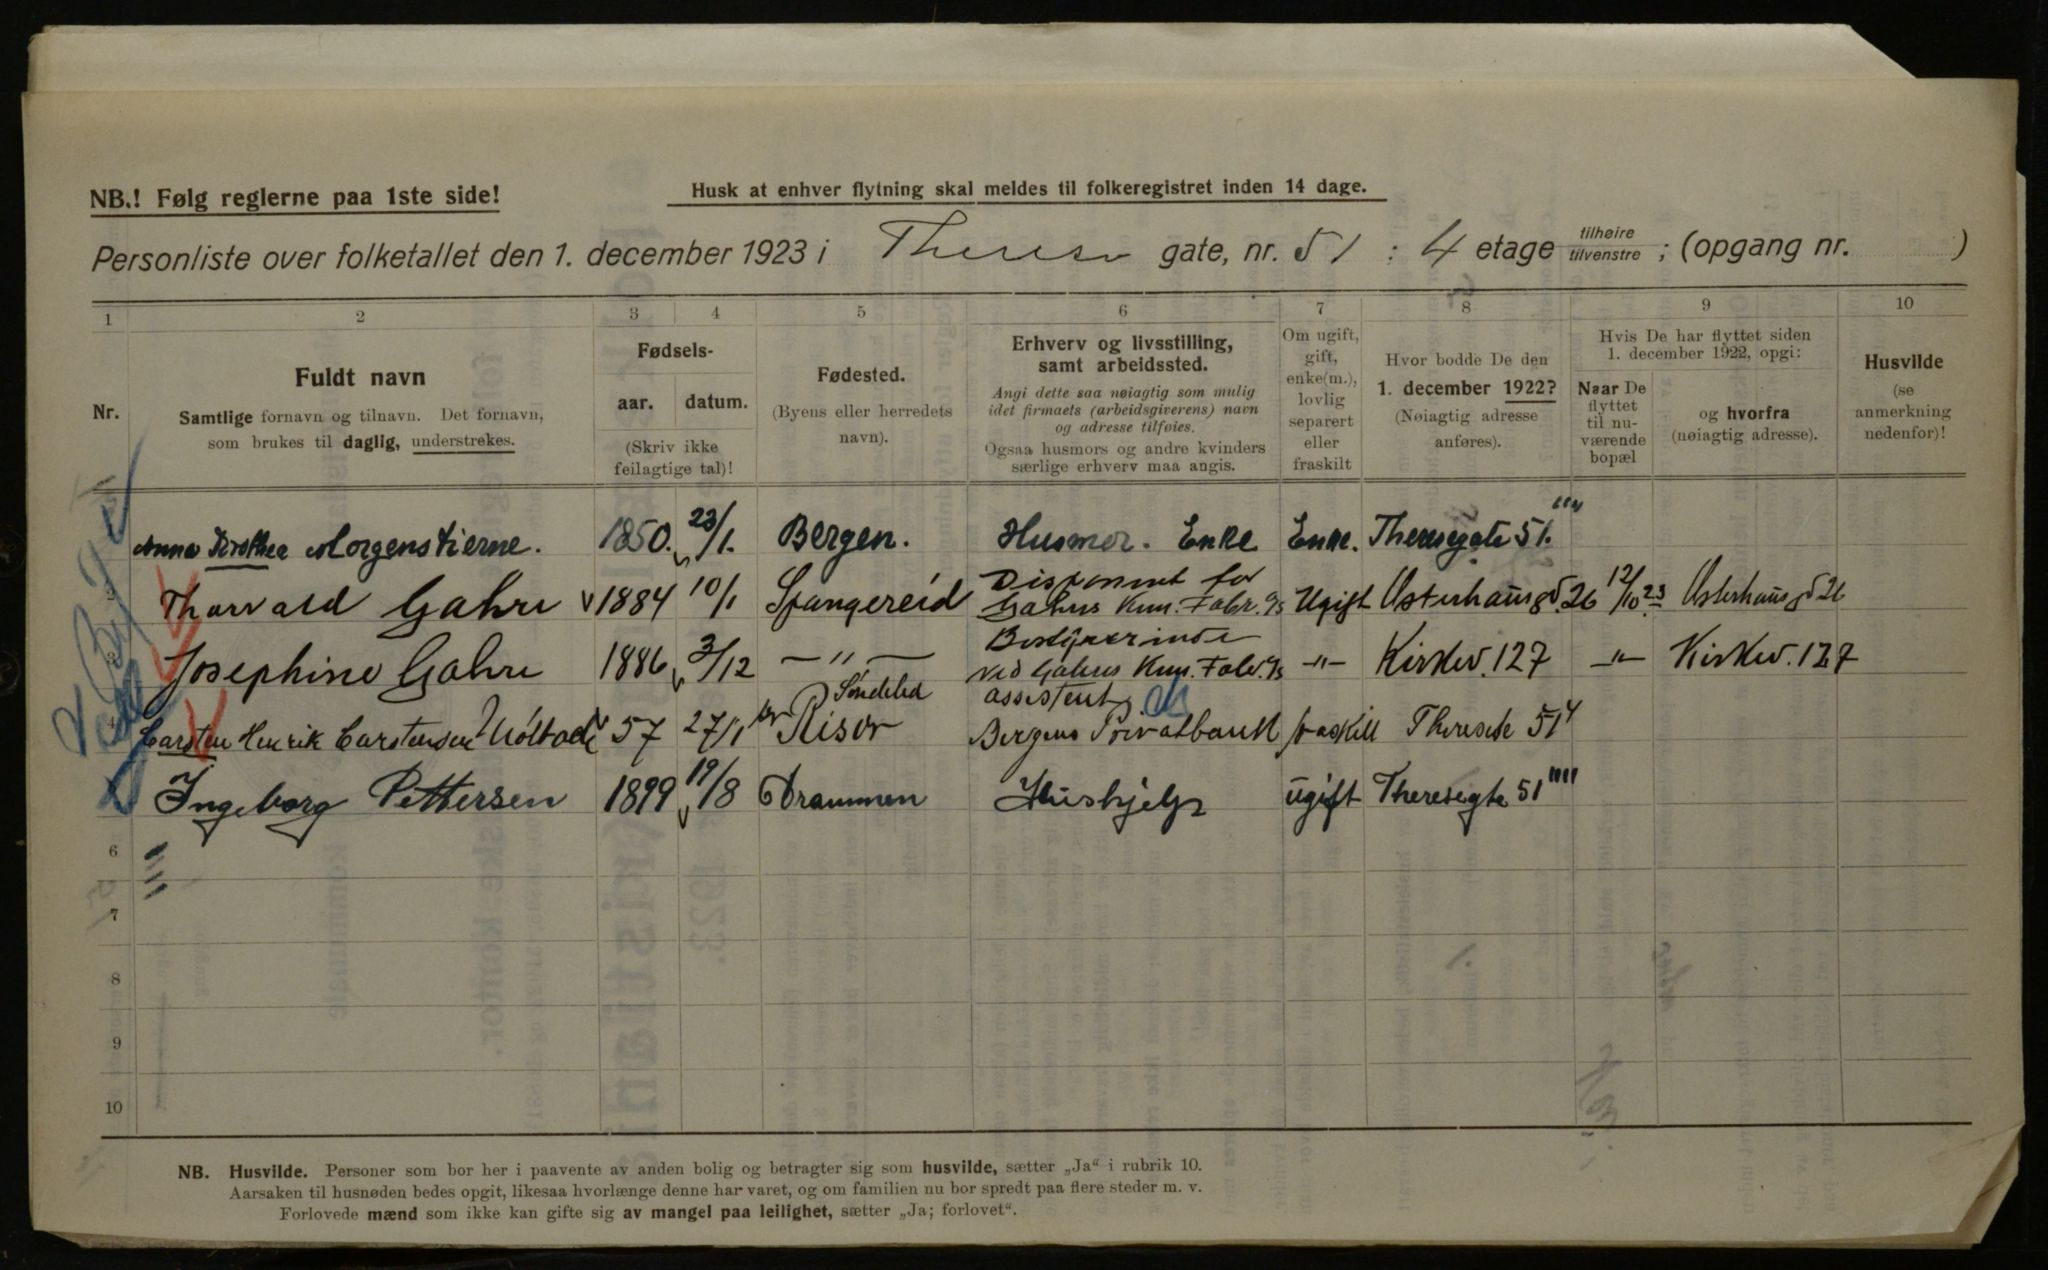 NB.! Følg reglerne paa 1ste side!
Husk at enhver flytning skal meldes til folkeregistret inden 14 dage.
Personliste over folketallet den 1. december 1923 i Theresa gate, nr. 51 : 4 etage tilhøire tilvenstre ; (opgang nr. )
1 2 3 4 5 6 7 8 9 10
Nr.
Fuldt navn
Samtlige fornavn og tilnavn. Det fornavn,
som brukes til daglig, understrekes.
Fødsels-
aar. datum.
(Skriv ikke
feilagtige tal)!
Fødested.
(Byens eller herredets
navn).
Erhverv og livsstilling,
samt arbeidssted.
Angi dette saa nøiagtig som mulig
idet firmaets (arbeidsgiverens) navn
og adresse tilføies.
Ogsaa husmors og andre kvinders
særlige erhverv maa angis.
Om ugift,
gift,
enke(m.),
lovlig
separert
eller
fraskilt
Hvor bodde De den
1. december 1922?
(Nøiagtig adresse
anføres).
Hvis De har flyttet siden
1. december 1922, opgi:
Naar De
flyttet
til nu-
værende
bopæl
og hvorfra
(nøiagtig adresse).
Husvilde
(se
anmerkning
nedenfor)!
Anna Dorothea Morgenstierne. 1850. 23/1. Bergen. Husmor. Enke Enke. Theresegate 51.""
Thorvald Gahre 1884 10/1 Spangereid Disponent for Gahres Kem. Fabr. A/s Ugift Osterhausgd. 26 12/10 23 Osterhausgd 26
3 Josephine Gahre 1886 3/12 —"— Bestyrerinde ved Gahres Kem. Fabr. A/s —"— Kirkev. 127 —"— Kirkev. 127
4 Carsten Henrik Carstensen 57 27/1 Søndeled pr Risør assistent Bergens Privatbank fraskilt 51 4
Ingeborg Pettersen 1899 19/8 Drammen Hushjelp ugift Theresegte 51 """
6
7
8
9
10
NB. Husvilde. Personer som bor her i paavente av anden bolig og betragter sig som husvilde, sætter „Ja“ i rubrik 10.
Aarsaken til husnøden bedes opgit, likesaa hvorlænge denne har varet, og om familien nu bor spredt paa flere steder m. v.
Forlovede mænd som ikke kan gifte sig av mangel paa leilighet, sætter „Ja; forlovet“.